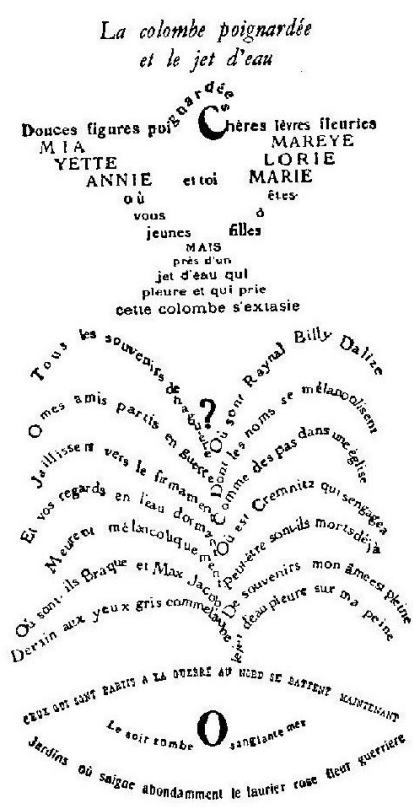 La colombe poignardée
et le jet d'eau
Douces figures poignardées Chères lèvres fleuries
MIA MAREYE
YETTE LORIE
ANNIE et toi MARIE
où êtes-
vous ô
jeunes filles
MAIS
près d'un
jet d'eau qui
pleure et qui prie
cette colombe s'extasie
?
Tous les souvenirs de naguère
O mes amis partis en guerre
Jaillissent vers le firmament
Et vos regards en l'eau dormant
Meurent mélancoliquement
Où sont-ils Braque et Max Jacob
Derain aux yeux gris comme l'aube
Où sont Raynal Billy Dalize
Dont les noms se mélancolisent
Comme des pas dans une église
Où est Cremnitz qui s'engagea
Peut-être sont-ils morts déjà
De souvenirs mon âme est pleine
le jet d'eau pleure sur ma peine
CEUX QUI SONT PARTIS A LA GUERRE AU NORD SE BATTENT MAINTENANT
Le soir tombe O sanglante mer
Jardins où saigne abondamment le laurier rose fleur guerrière